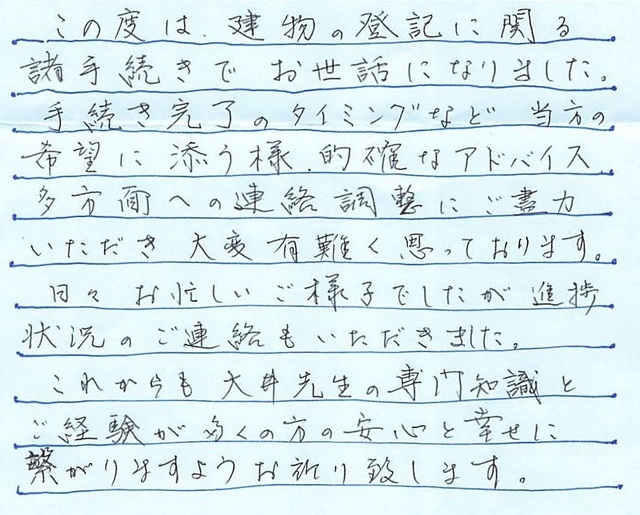 この度は、建物の登記に関る
諸手続きでお世話になりました。
手続き完了のタイミングなど当方の
希望に添う様、的確なアドバイス
多方面への連絡調整にご盡力
いただき大変有難く思っております。
日々お忙しいご様子でしたが進捗
状況のご連絡もいただきました。
これからも大井先生の専門知識と
ご経験が多くの方の安心と幸せに
繋がりますようお祈り致します。